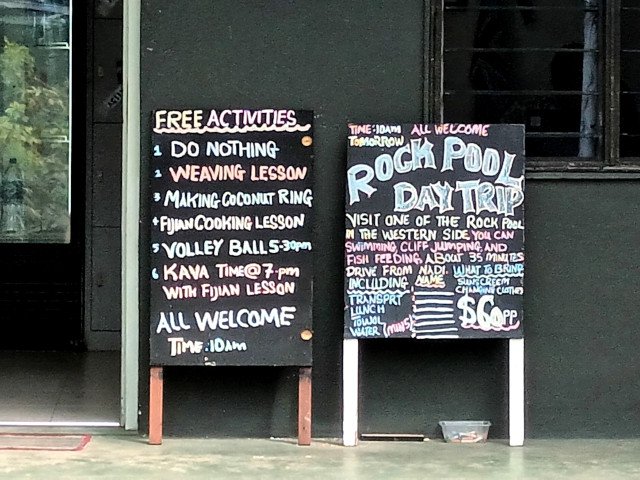 FREE ACTIVITIES
1 DO NOTHING
2 WEAVING LESSON
3 MAKING COCONUT RING
4 FIJIAN COOKING LESSON
5 VOLLEY BALL 5-30pm
6 KAVA TIME@7-pm
WITH FIJIAN LESSON
ALL WELCOME
TIME:10am
TIME:10am ALL WELCOME
TOMORROW
ROCK POOL
DAY TRIP
VISIT ONE OF THE ROCK POOL
IN THE WESTERN SIDE YOU CAN
SWIMMING, CLIFF JUMPING AND
FISH FEEDING, ABOUT 35 MINUTES
DRIVE FROM NADI. WHAT TO BRING
INCLUDING NAME SUNSCREEM
CHANGING CLOTHES
TRANSPRT
LUNCH
TOUWOL
WATER
$60PP